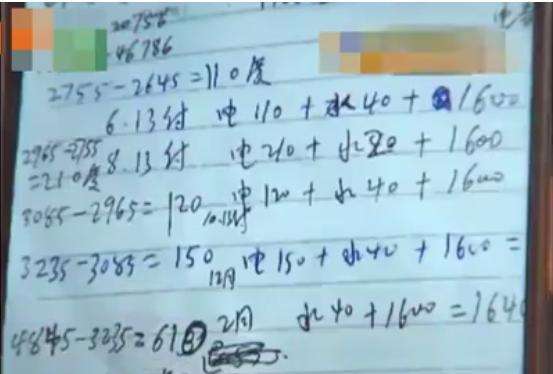 20756
46786
2755-2645=110度
6.13付 电110+水40+1600
2965-2755=210度
8.13付 电210+水80+1600
3085-2965=120 10.13付 电120+水40+1600
3235-3085=150 12月 电150+水40+1600=
4845-3235=61 2月 水40+1600=1640